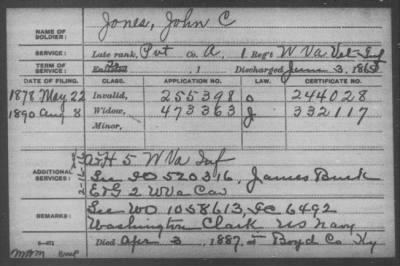 NAME OF SOLDIER: Jones, John C
SERVICE: Late rank, Pvt Co. A, 1 Reg't W Va Vol. Inf
TERM OF SERVICE: Enlisted 1 Discharged June 3, 1865
DATE OF FILING. CLASS. APPLICATION NO. LAW. CERTIFICATE NO.
1878 May 22 Invalid, 255398 244028
1890 Aug 8 Widow, 473363 J. 332117
Minor,
ADDITIONAL SERVICES: A+H 5 W Va Inf
See SO 520316, James Buck
E+G 2 W Va Cav
REMARKS: See WO 1058613, 6492
Washington Clark US Navy
Died Apr 3, 1887, Boyd Co Ky